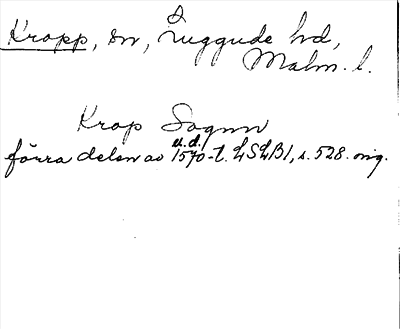 Kropp, sn, Luggude hd,
Malm. l.
Krop Sognn
u.d.
förra delen av 1570-t. LSLB1, s. 528. orig.